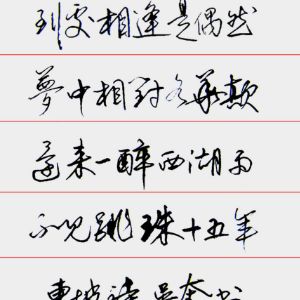 到處相逢是偶然
夢中相對各華顛
還来一醉西湖雨
不見跳珠十五年
東坡詩